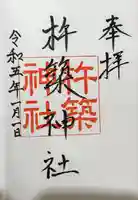 奉拝
杵築神社
令和五年一月一日
杵築
神社